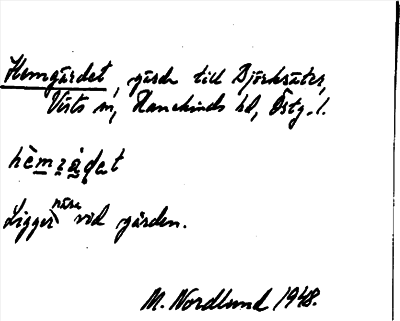 Hemgärdet, gärde till Björksäter,
Vists sn, Hanekinds hd, Östg. l.
Ligger nära vid gården.
M. Nordlund 1948.